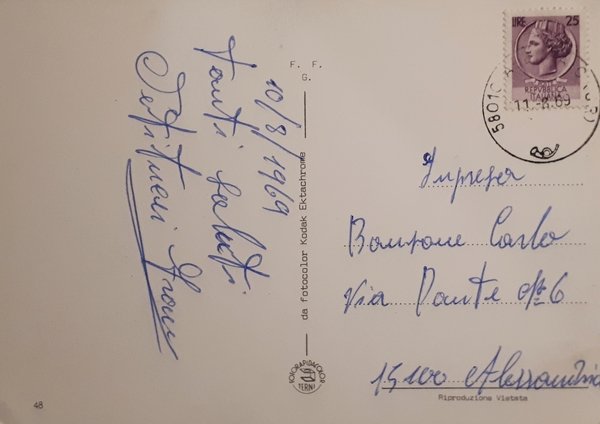 10/8/1969
Tanti saluti
F. F.
G.
da fotocolor Kodak Ektachrome
FOTORAPIDACOLOR
TERNI
48
LIRE 25
REPUBBLICA
ITALIANA
5801
11.-8.69
Impresa
Carlo
Via Dante
6
15100 Alessandria
Riproduzione Vietata